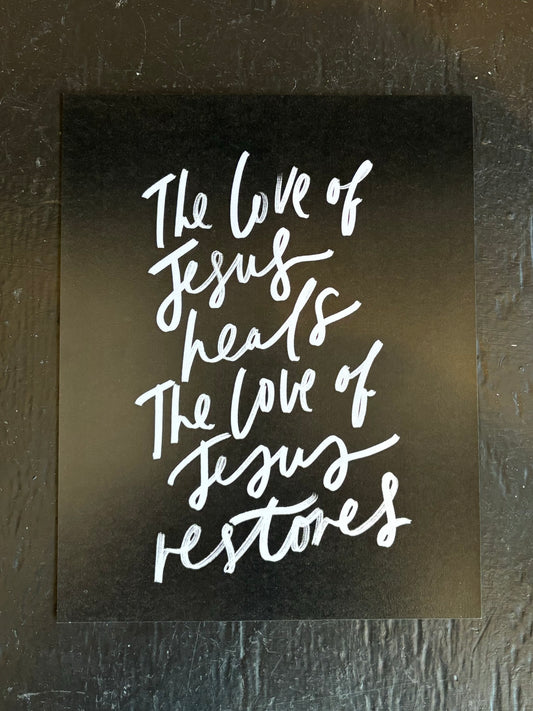 The love of
Jesus
heals
The love of
Jesus
restores